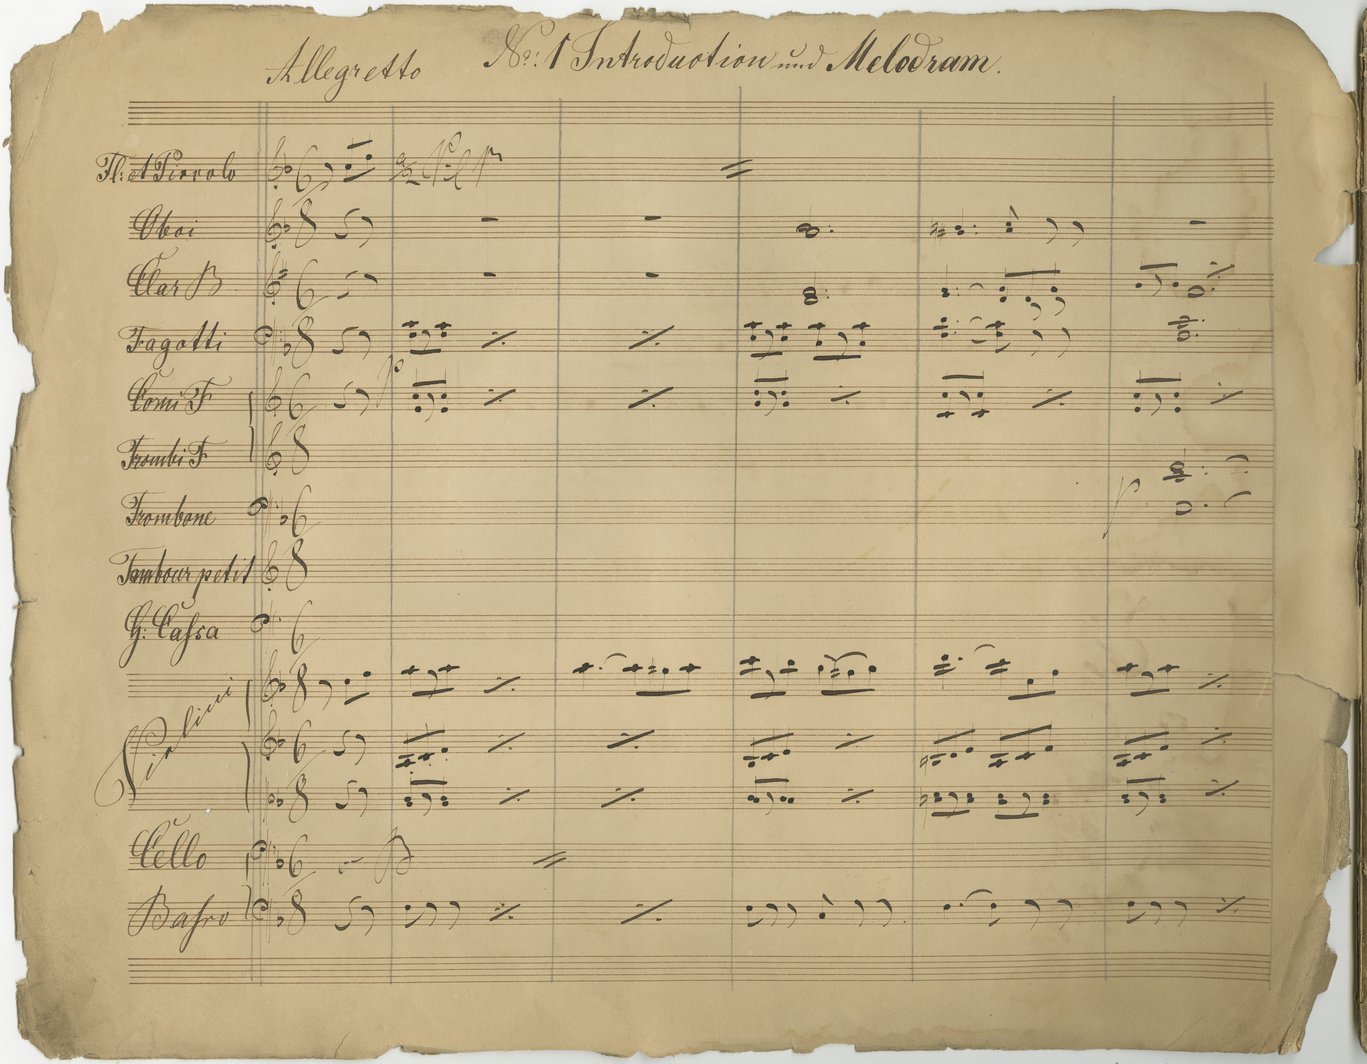 Allegretto
No: 1 Introduction und Melodram.
Fl: et Piccolo
Oboi
Clar B
Fagotti
p
Corni F
Trombi F
Trombone
p
Tambour petit
G: Cassa
Violini
Cello
B
Basso